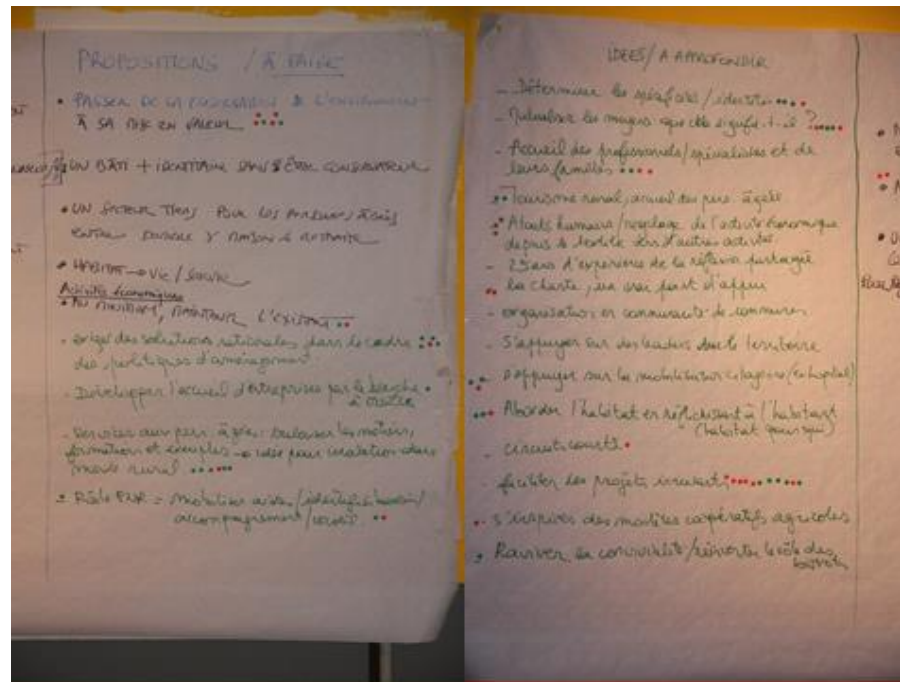 PROPOSITIONS / À FAIRE
• PASSER DE LA CONSERVATION DE L'ENVIRONNEMENT
À SA MISE EN VALEUR
UN BÂTI + IDENTITAIRE SANS ÊTRE CONSERVATEUR
• UN SECTEUR TIERS POUR LES PERSONNES ÂGÉES
ENTRE DOMICILE & MAISON DE RETRAITE
• HABITAT → VIE / SOCIAL
Activités économiques
• AU MINIMUM, MAINTENIR L'EXISTANT
- exiger des solutions nationales dans le cadre
des politiques d'aménagement
- Développer l'accueil d'entreprises par la
à
- Services aux pers. âgées: les métiers,
formation et → idée pour installation dans
monde rural
- Rôle PNR = mobiliser aides / identifier besoin /
accompagnement /
IDEES / A APPROFONDIR
- Déterminer les spécificités / identité
- Mutualiser les moyens que cela signifie-t-il ?
- Accueil des professionnels / spécialistes et de
leurs familles
Tourisme rural, accueil des pers. âgées
Atouts humains / recyclage de l'activité économique
depuis le textile vers d'autres activités
- 25 ans d'expérience de la réflexion partagée
la charte, un vrai point d'appui
- organisation en communauté de communes
- S'appuyer sur des leaders dans le territoire
S'appuyer sur la mobilisation citoyenne (ex hopital)
Aborder l'habitat en réfléchissant à l'habitant
(habitat pour qui)
- circuits courts
- faciliter les projets innovants
s'inspirer des modèles coopératifs agricoles
Raviver la convivialité / réinventer le rôle des
bistrots